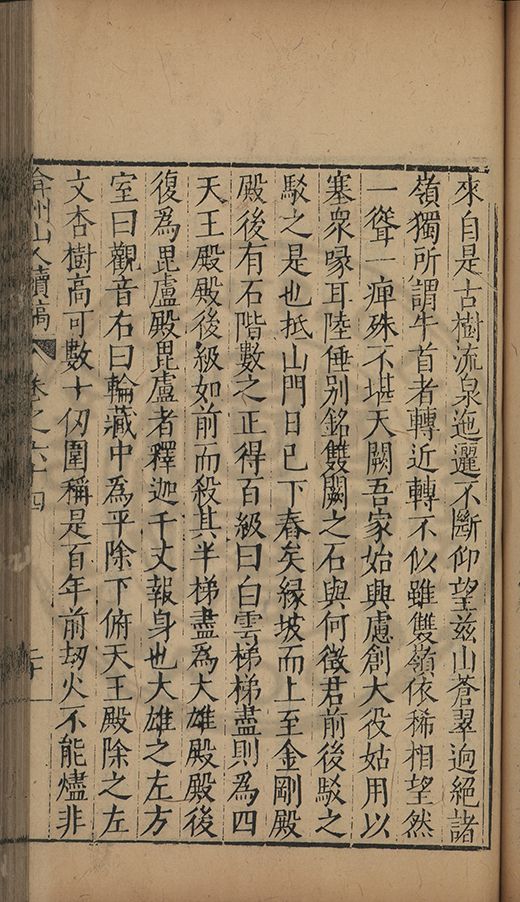 來自是古樹流泉迤邐不斷仰望兹山蒼翠逈絕諸
嶺獨所謂牛首者轉近轉不似雖雙嶺依稀相望然
一聳一痺殊不堪天闕吾家始興慮創大役姑用以
塞衆喙耳陸倕别銘雙闕之石與何徵君前後駁之
駁之是也抵山門日已下舂矣縁坡而上至金剛殿
殿後有石階數之正得百級曰白雲梯梯盡則為四
天王殿殿後級如前而殺其半梯盡為大雄殿殿後
復為毘盧殿毘盧者釋迦千丈報身也大雄之左方
室曰觀音右曰輪藏中為平除下俯天王殿除之左
文杏樹高可數十仭圍稱是百年前刼火不能燼非
弇州山人續稿 卷之六十四 二十